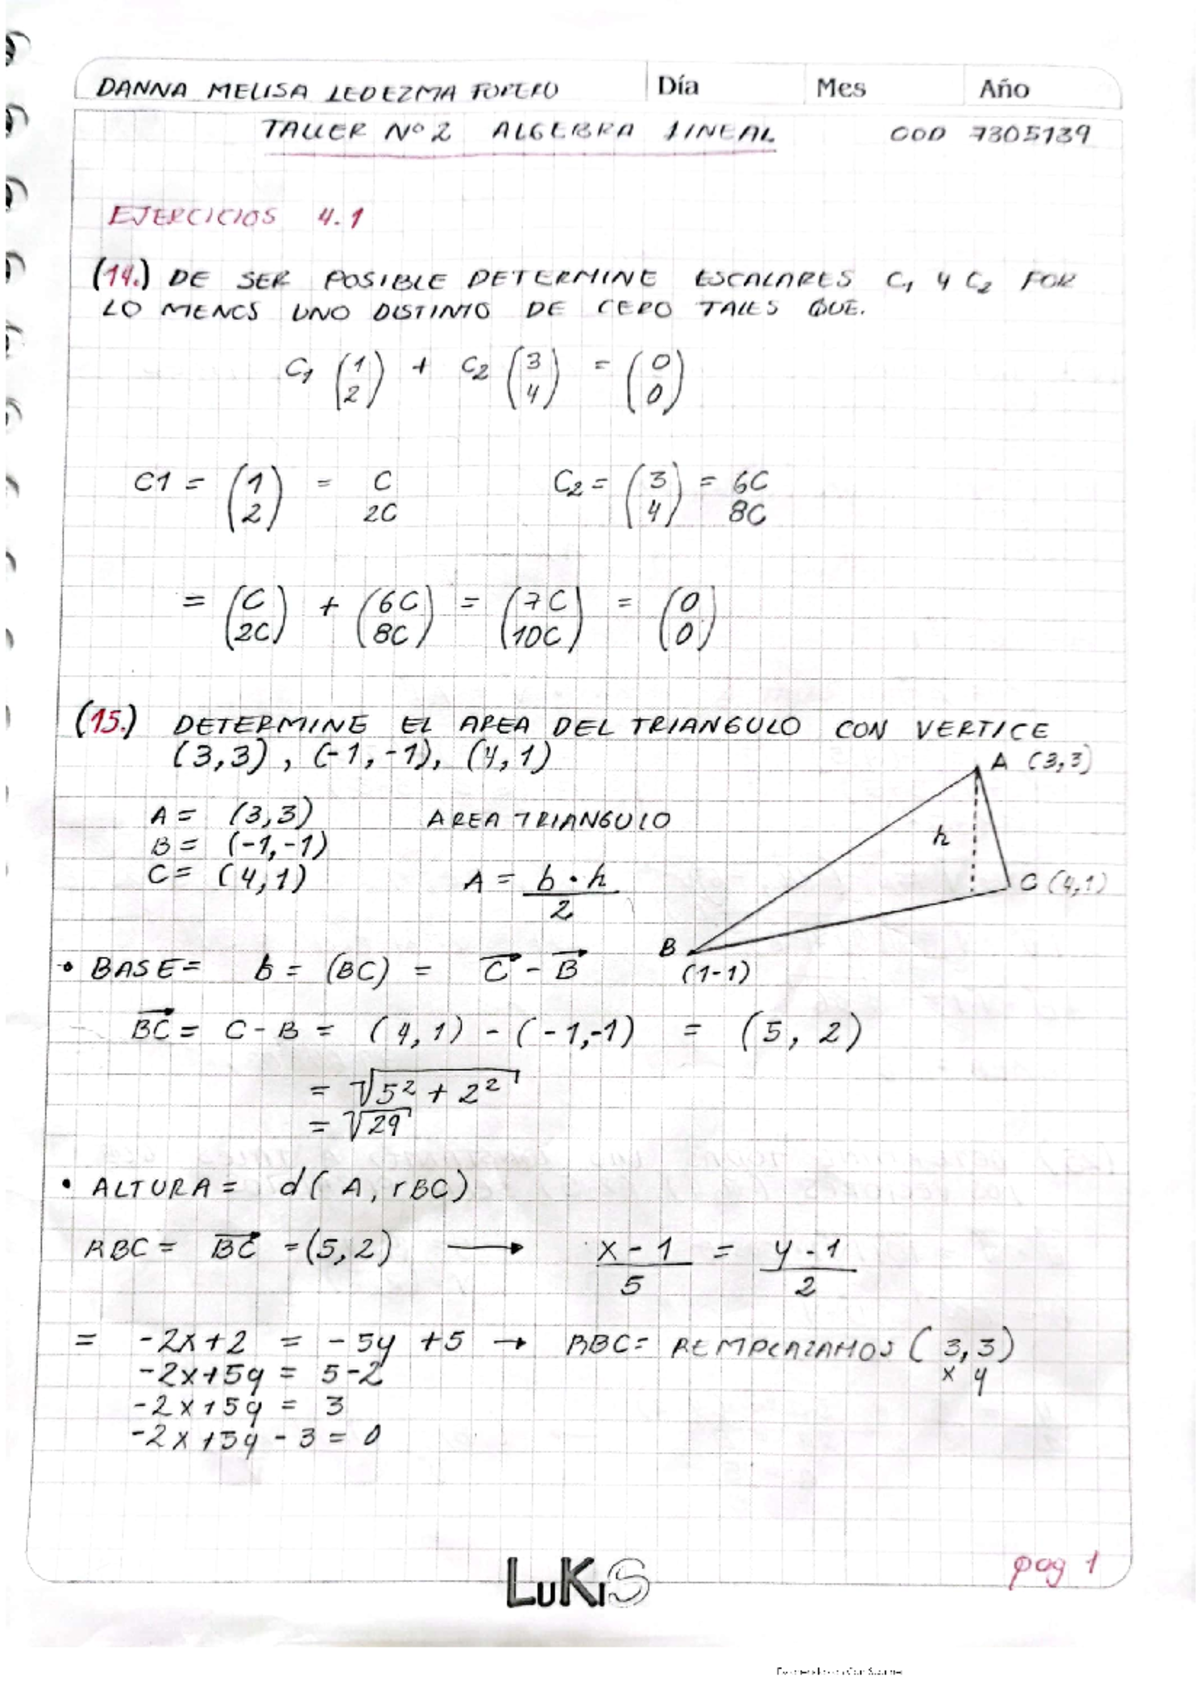 DANNA MELISA LEDEZMA TORERO Día Mes Año
TALLER Nº 2 ALGEBRA LINEAL COD 7305139
EJERCICIOS 4.1
(14.) DE SER POSIBLE DETERMINE ESCALARES C₁ Y C₂ POR
LO MENOS UNO DISTINTO DE CERO TALES QUE.
C₁ (1 2) + C₂ (3 4) = (0 0)
C1 = (1 2) = C 2C C₂ = (3 4) = 6C 8C
= (C 2C) + (6C 8C) = (7C 10C) = (0 0)
(15.) DETERMINE EL AREA DEL TRIANGULO CON VERTICE
(3,3), (-1,-1), (4,1)
A (3,3)
A = (3,3) AREA TRIANGULO
B = (-1,-1) h
C = (4,1) A = b·h / 2 C (4,1)
B
• BASE = b = (BC) = C - B (1-1)
BC = C - B = (4,1) - (-1,-1) = (5, 2)
= √5² + 2²
= √29
• ALTURA = d(A, rBC)
RBC = BC = (5,2) → x-1 / 5 = y-1 / 2
= -2x+2 = -5y +5 → RBC = REMPLAZAMOS (3,3)
-2x+5y = 5-2 x y
-2x+5y = 3
-2x+5y - 3 = 0
LUKIS
pag 1